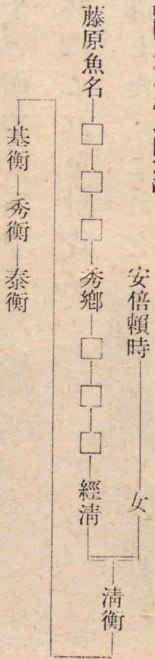 安倍賴時─女
藤原魚名─□─□─□─秀鄕─□─□─□─經淸
淸衡
基衡─秀衡─泰衡